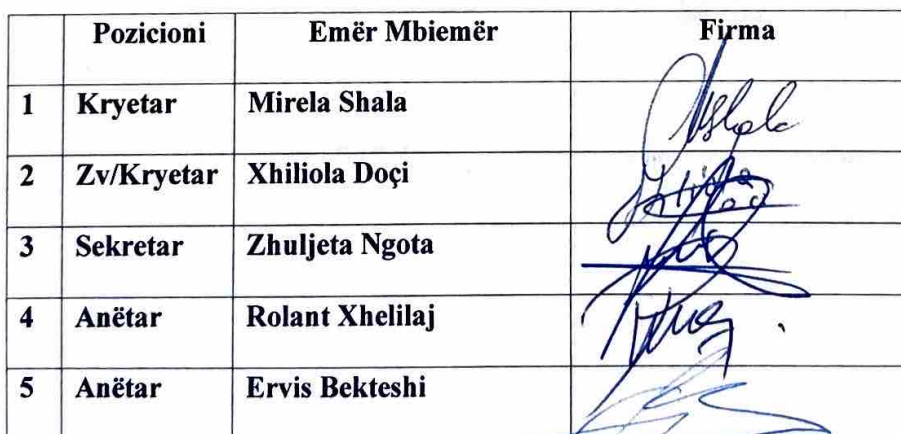 Pozicioni Emër Mbiemër Firma
1 Kryetar Mirela Shala
2 Zv/Kryetar Xhiliola Doçi
3 Sekretar Zhuljeta Ngota
4 Anëtar Rolant Xhelilaj
5 Anëtar Ervis Bekteshi